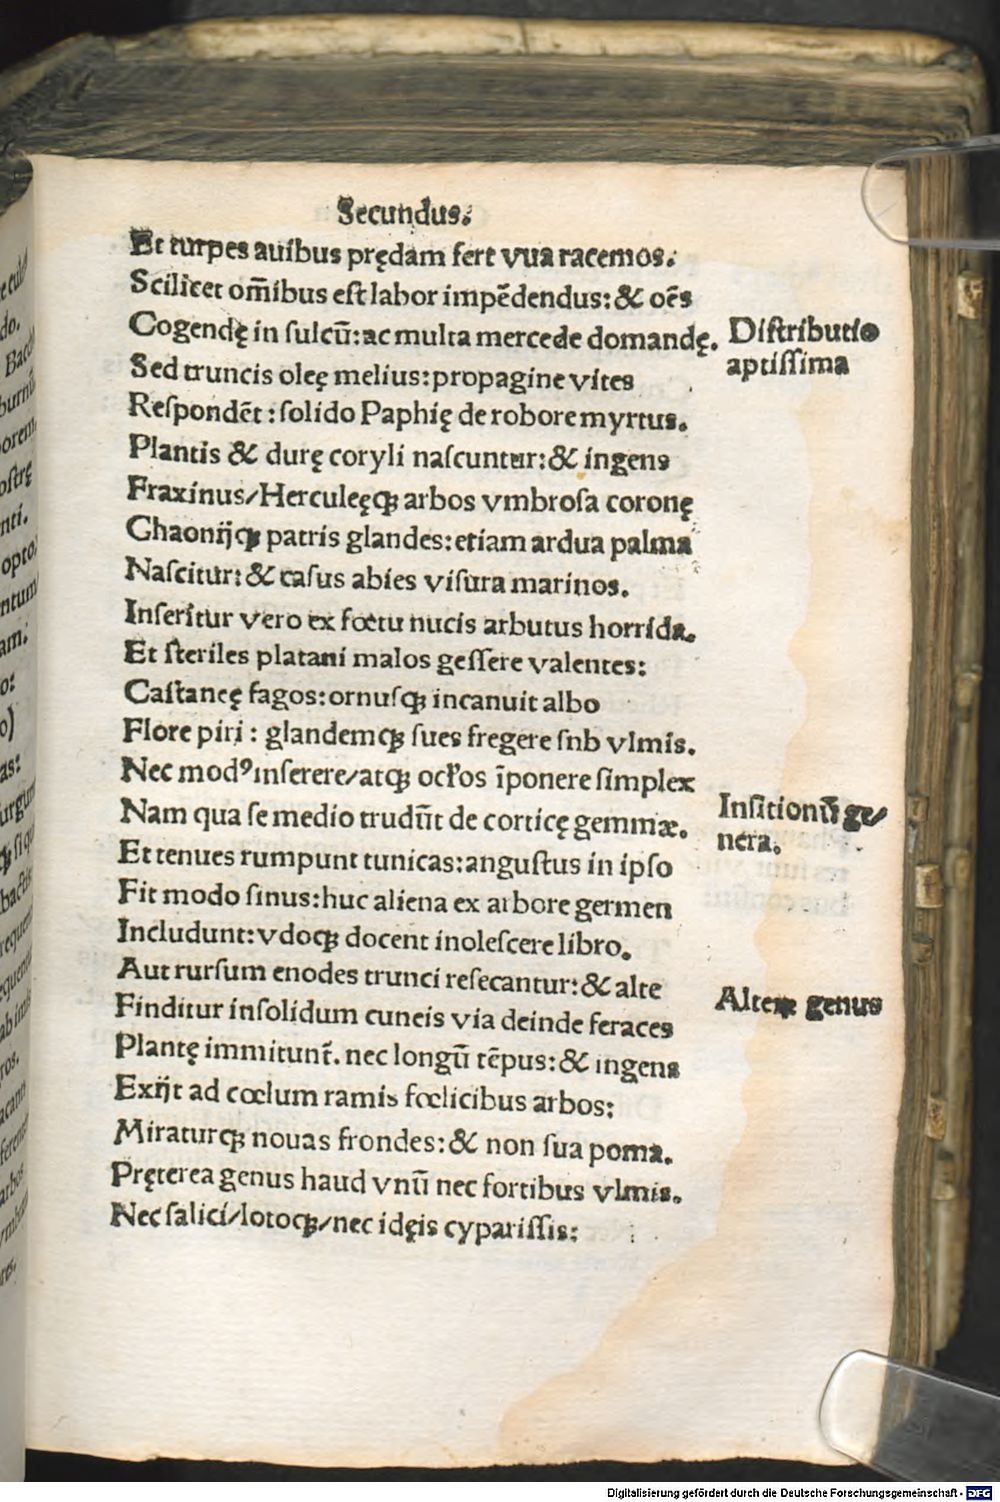 Secundus.
Et turpes auibus prędam fert vua racemos.
Scilicet om̄ibus est labor impēdendus: & oēs
Cogendę in sulcū: ac multa mercede domandę.
Distributio
aptissima
Sed truncis oleę melius: propagine vites
Respondēt: solido Paphię de robore myrtus.
Plantis & durę coryli nascuntur: & ingens
Fraxinus/Herculeęqꝫ arbos vmbrosa coronę
Chaonijqꝫ patris glandes: etiam ardua palma
Nascitur: & casus abies visura marinos.
Inseritur vero ex fœtu nucis arbutus horrida.
Et steriles platani malos gessere valentes:
Castaneę fagos: ornusqꝫ incanuit albo
Flore piri: glandemqꝫ sues fregere snb vlmis.
Nec modꝰ inserere/atqꝫ ocłos īponere simplex
Insitionū ge/
nera.
Nam qua se medio trudūt de corticę gemmæ.
Et tenues rumpunt tunicas: angustus in ipso
Fit modo sinus: huc aliena ex arbore germen
Includunt: vdoqꝫ docent inolescere libro.
Aut rursum enodes trunci resecantur: & alte
Alterꝝ genus
Finditur insolidum cuneis via deinde feraces
Plantę immitunt̄. nec longū tēpus: & ingens
Exijt ad cœlum ramis fœlicibus arbos:
Miraturqꝫ nouas frondes: & non sua poma.
Pręterea genus haud vnū nec fortibus vlmis.
Nec salici/lotoqꝫ/nec idęis cyparissis:
Digitalisierung gefördert durch die Deutsche Forschungsgemeinschaft - DFG